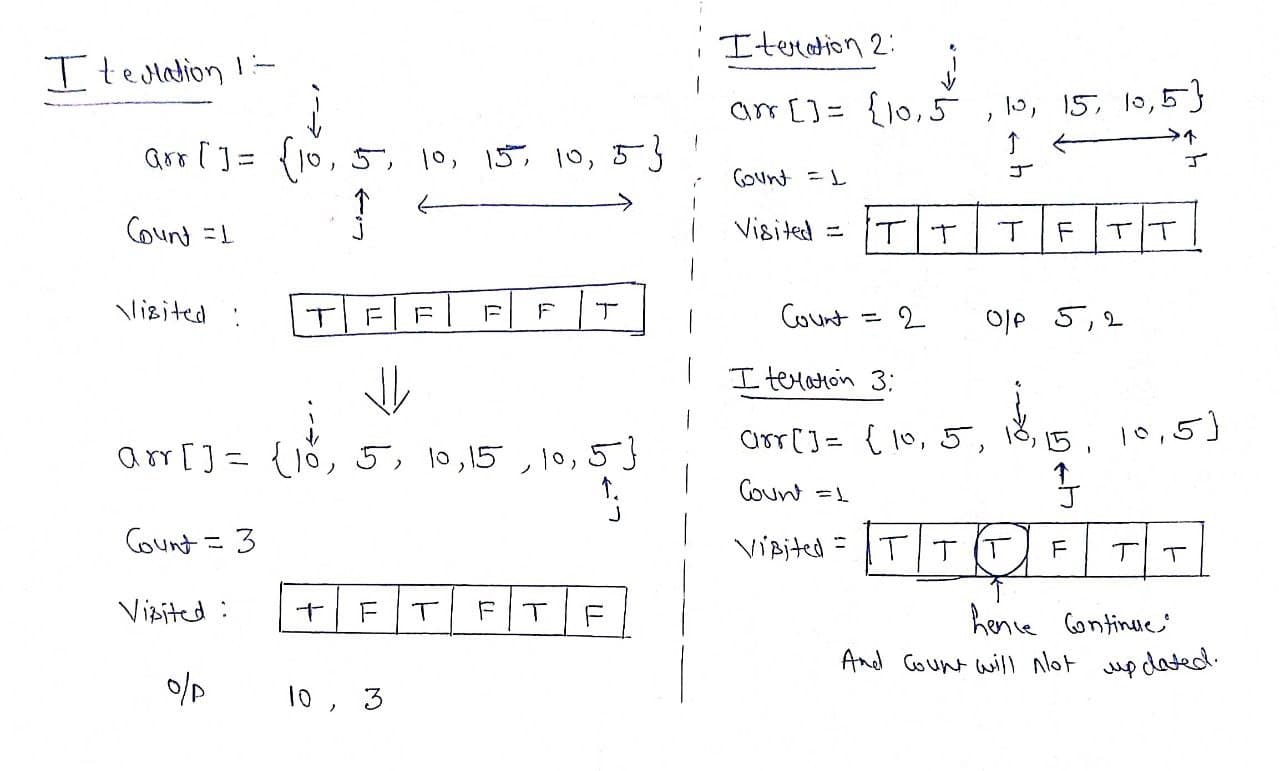 Iteration 1:-
i
arr[] = {10, 5, 10, 15, 10, 5}
j
Count = 1
Visited : T F F F F T
i
arr[] = {10, 5, 10, 15, 10, 5}
j
Count = 3
Visited : T F T F T F
o/p 10, 3
Iteration 2:
i
arr[] = {10, 5, 10, 15, 10, 5}
J J
Count = 1
Visited = T T T F T T
Count = 2 O/P 5, 2
Iteration 3:
i
arr[] = {10, 5, 10, 15, 10, 5}
J
Count = 1
Visited = T T T F T T
hence Continue;
And Count will Not updated.